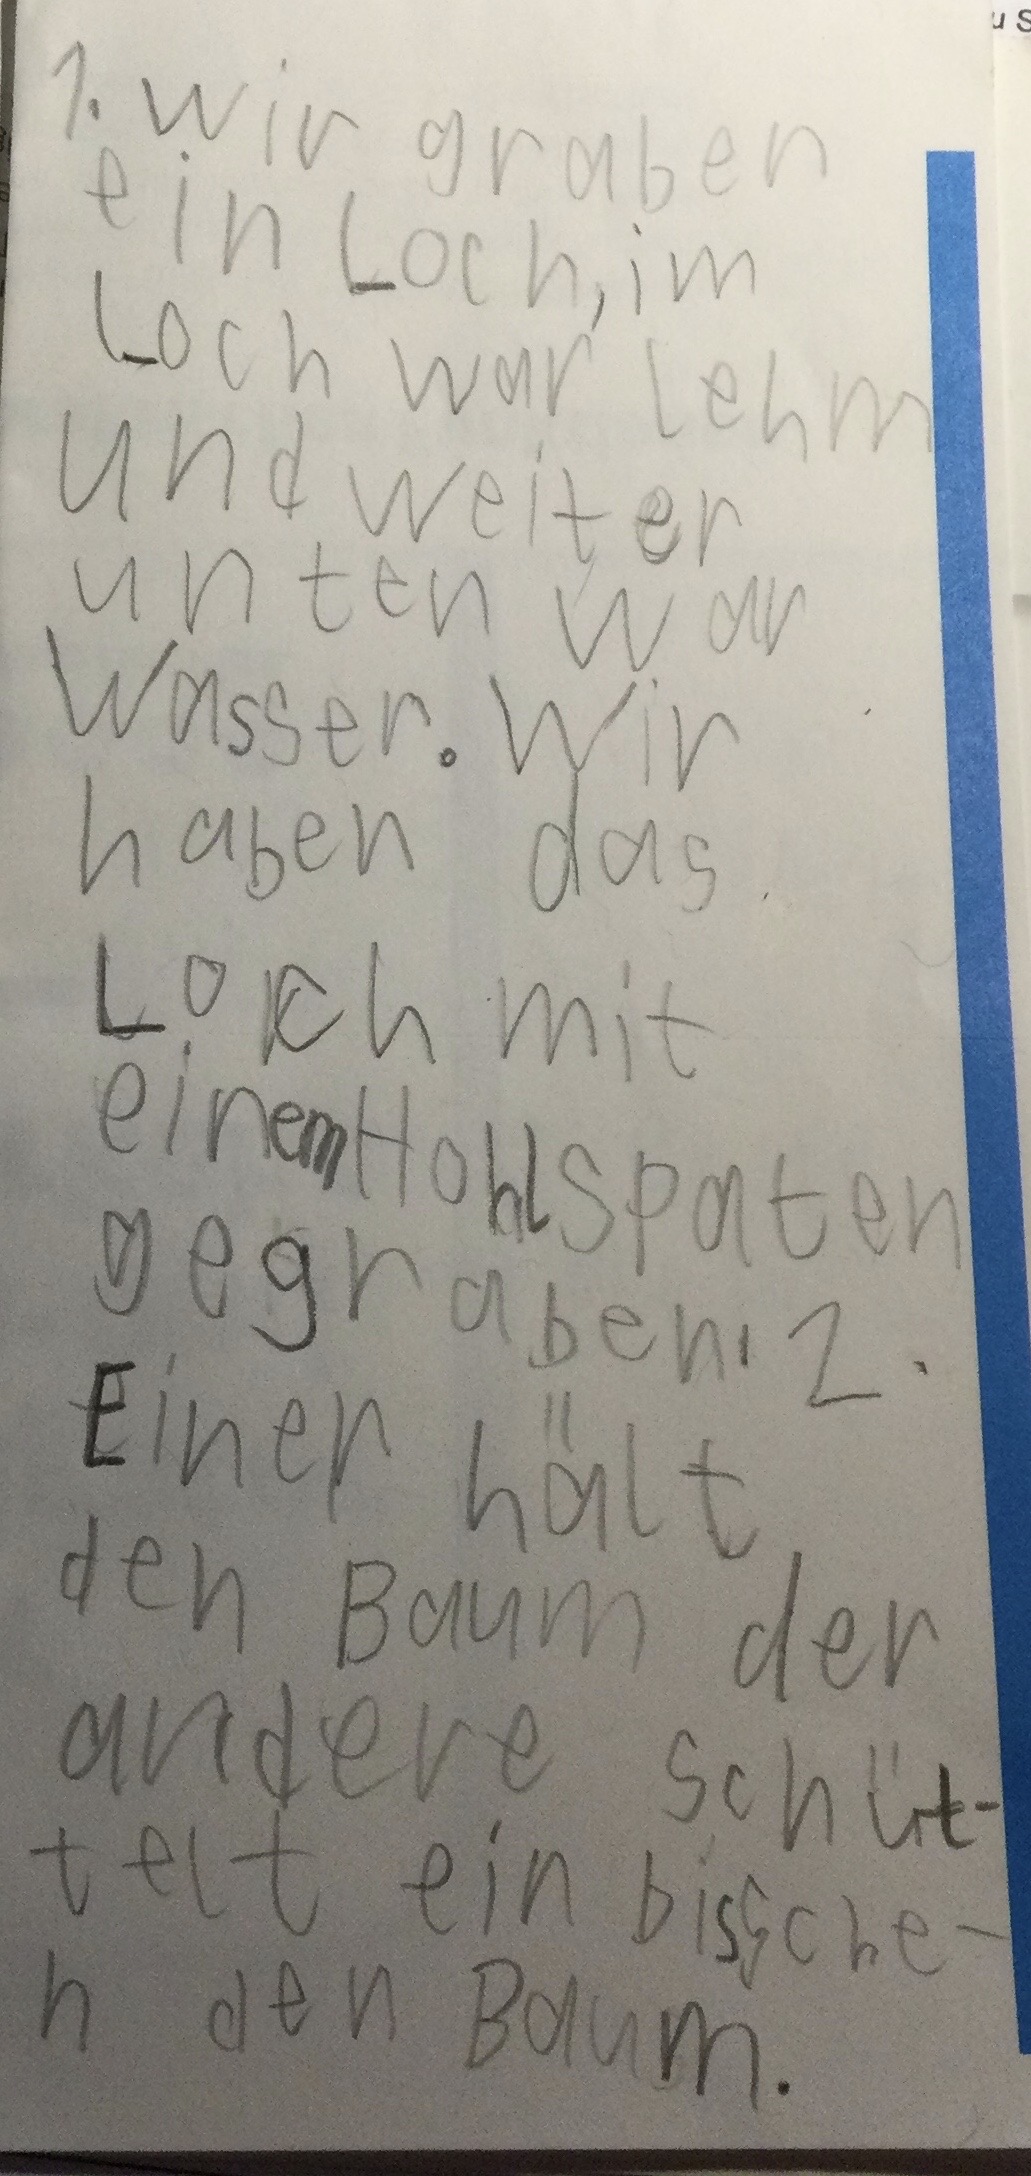 us
1. Wir graben
ein Loch, im
Loch war lehm
und weiter
unten war
Wasser. Wir
haben das
Loch mit
einem Hohlspaten
gegraben. 2.
Einer hält
den Baum der
andere schüt-
telt ein bissche-
n den Baum.